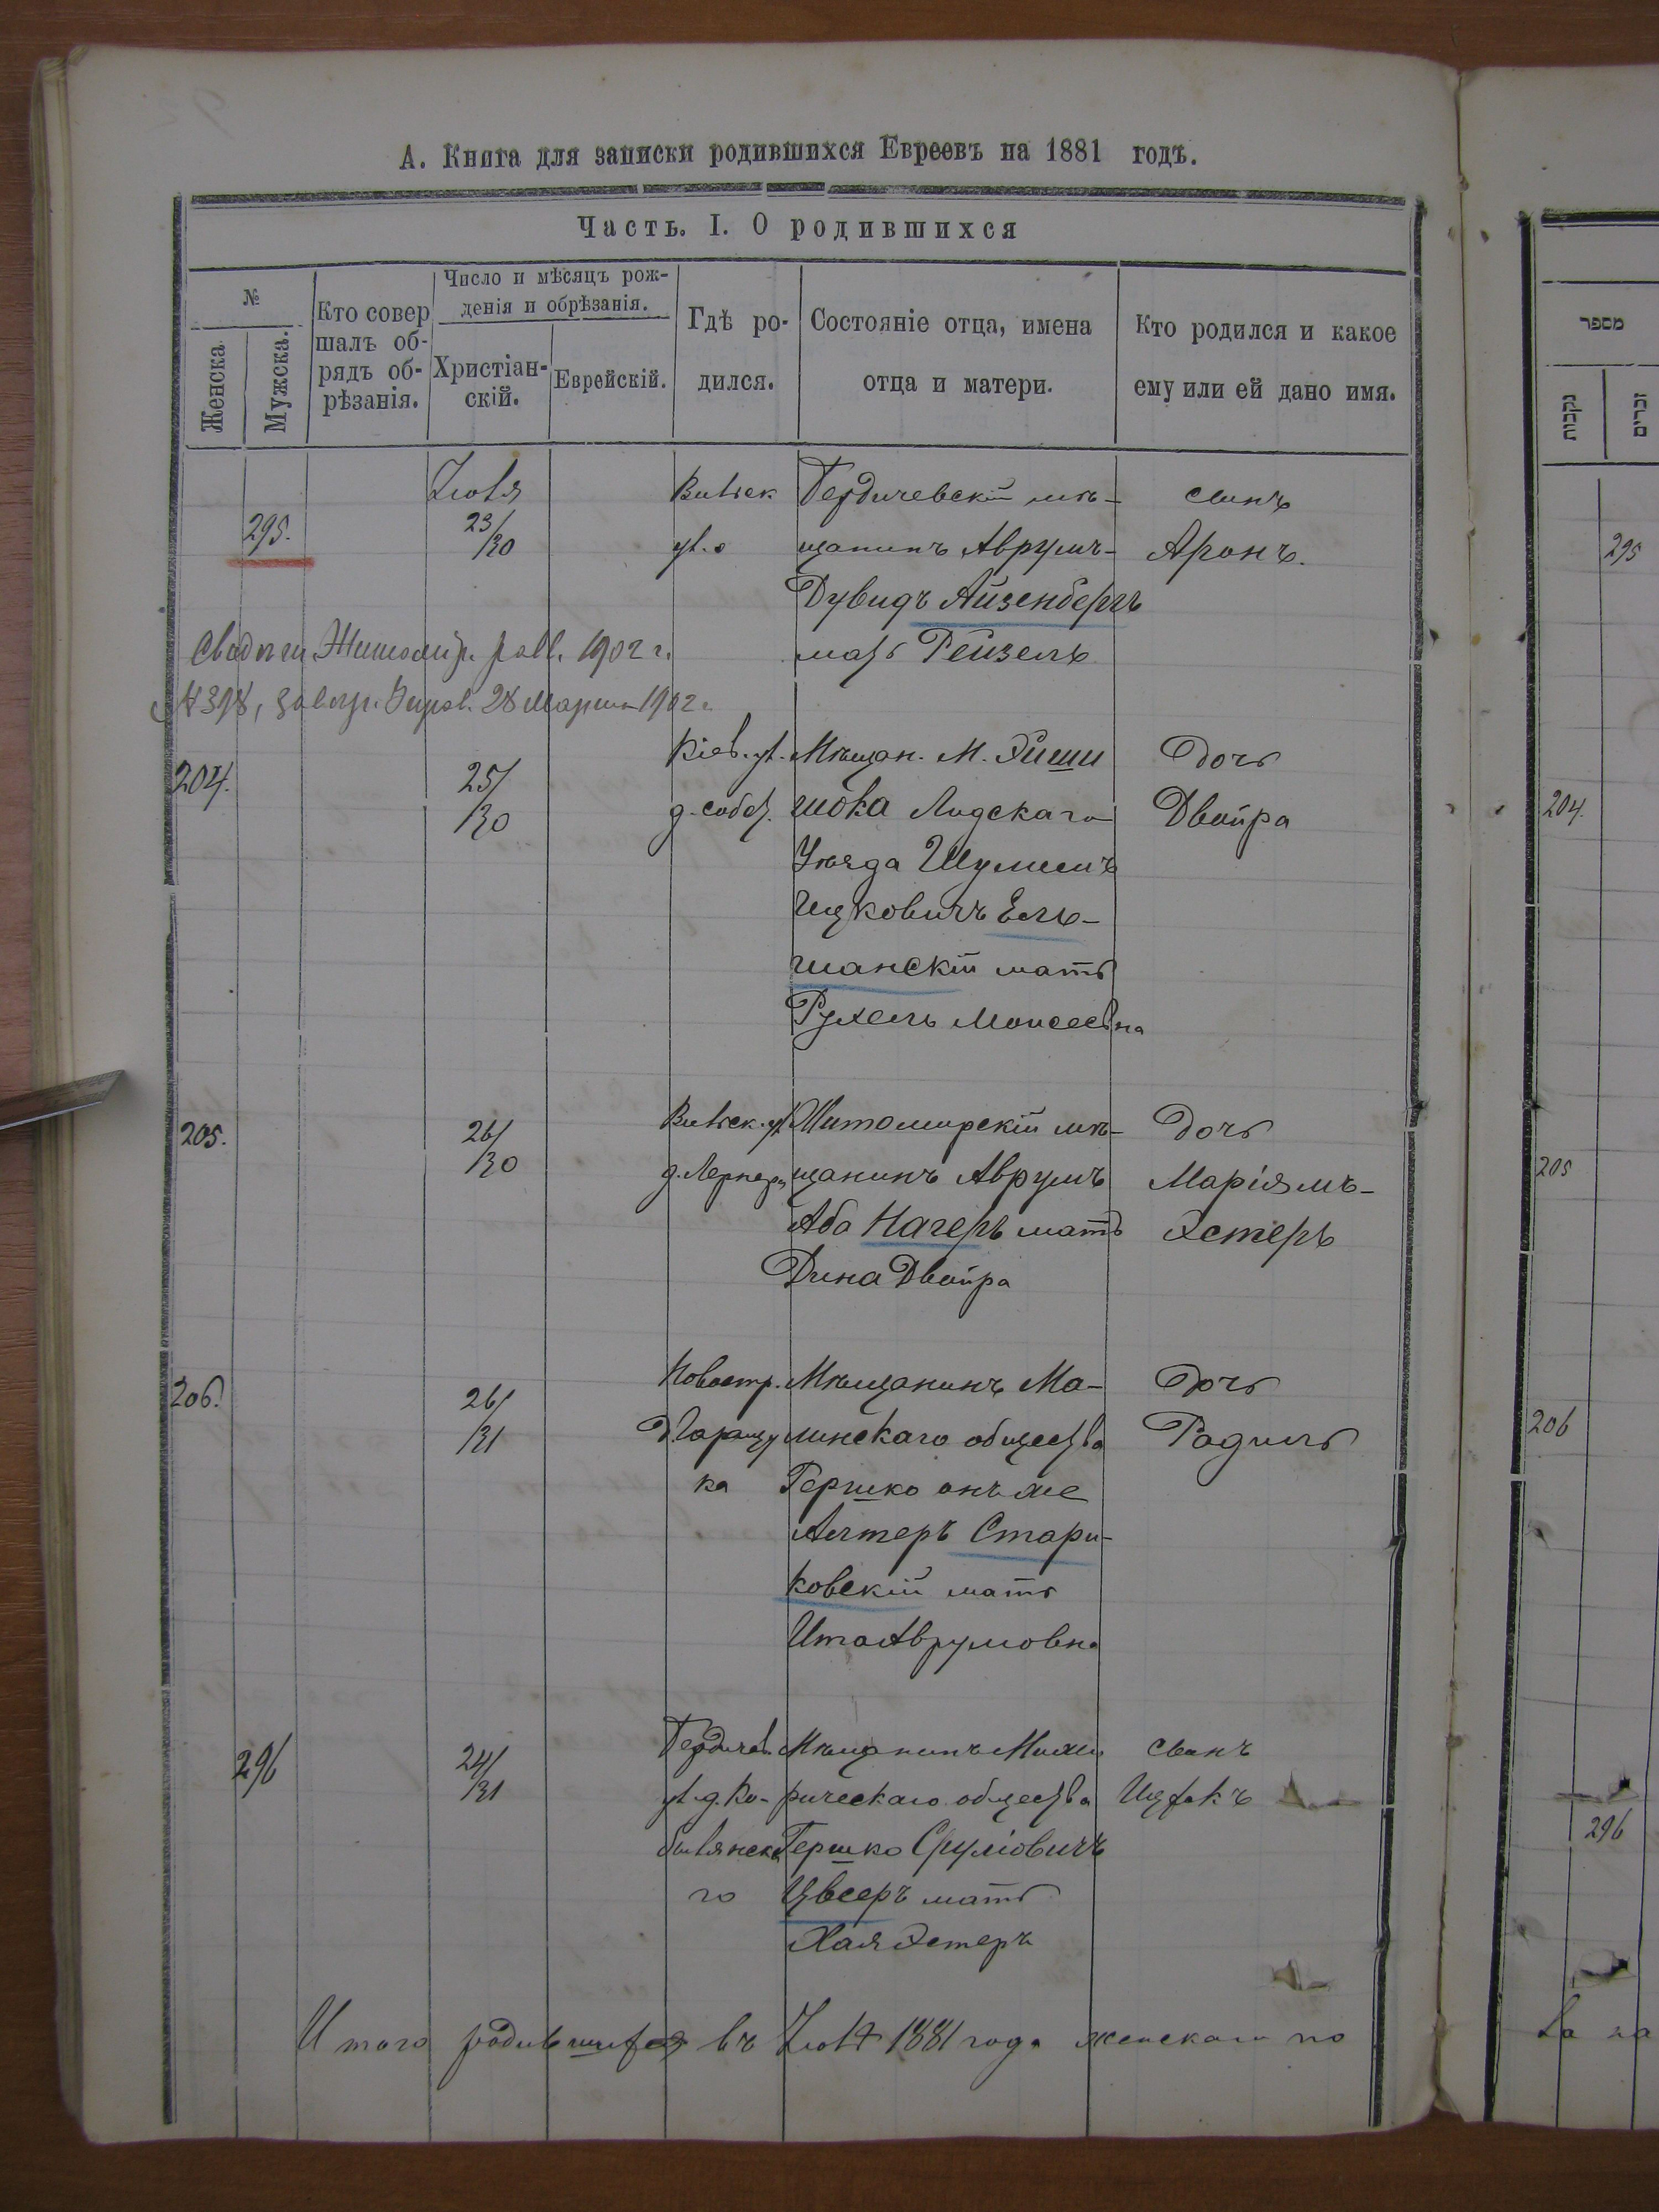 А. Книга для записки родившихся Евреевъ на 1881 годъ.
Часть. I. О родившихся
№
Женска
Мужска.
Кто совер
шалъ об-
рядъ об-
рѣзанія.
Число и мѣсяцъ рож-
денія и обрѣзанія.
Христіан-
скій.
Еврейскій.
Гдѣ ро-
дился.
Состояніе отца, имена
отца и матери.
Кто родился и какое
ему или ей дано имя.
295.
Іюля
23/
/30
ул.
Бердичевскій мѣ-
щанинъ Аврумъ-
Дувидъ Айзенбергъ
мать Рейзель
сынъ
Аронъ.
Житомир. 1902 г.
№ 398, 28 Марта 1902 г.
204.
25/
/30
Кіев. ул.
д. собст.
Мѣщан. М. Эйши
шока Лидскаго
Уѣзда Шулимъ
Ицковичъ Ель-
шанскій мать
Рухель Моисеевна
Дочь
Двойра
205.
26/
/30
ул.
Житомирскій мѣ-
щанинъ Аврумъ
Аба Нагеръ мать
Дина Двойра
Дочь
Маріямъ-
Эстеръ
206.
26/
/31
Новостр.
ка
Мѣщанинъ Ма-
линскаго общества
Гершко онъ же
Алтеръ Стари-
ковскій мать
Ита Аврумовна
Дочь
Радиль
296
24/
/31
Бердичев.
ул. д. Ко-
былянска
го
Мѣщанинъ
общества
Гершко Сруліовичъ
Цвееръ мать
Хая Эстеръ
сынъ
Ицхакъ
Итого родившихся въ Іюлѣ 1881 года женскаго по
מספר
נקבות
זכרים
295
204.
205
206
296
ла на